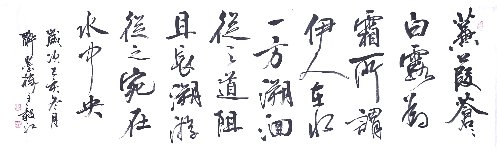 蒹葭蒼〻
白露為
霜所謂
伊人在水
一方溯洄
從之道阻
且長溯游
從之宛在
水中央
歲次亥冬月